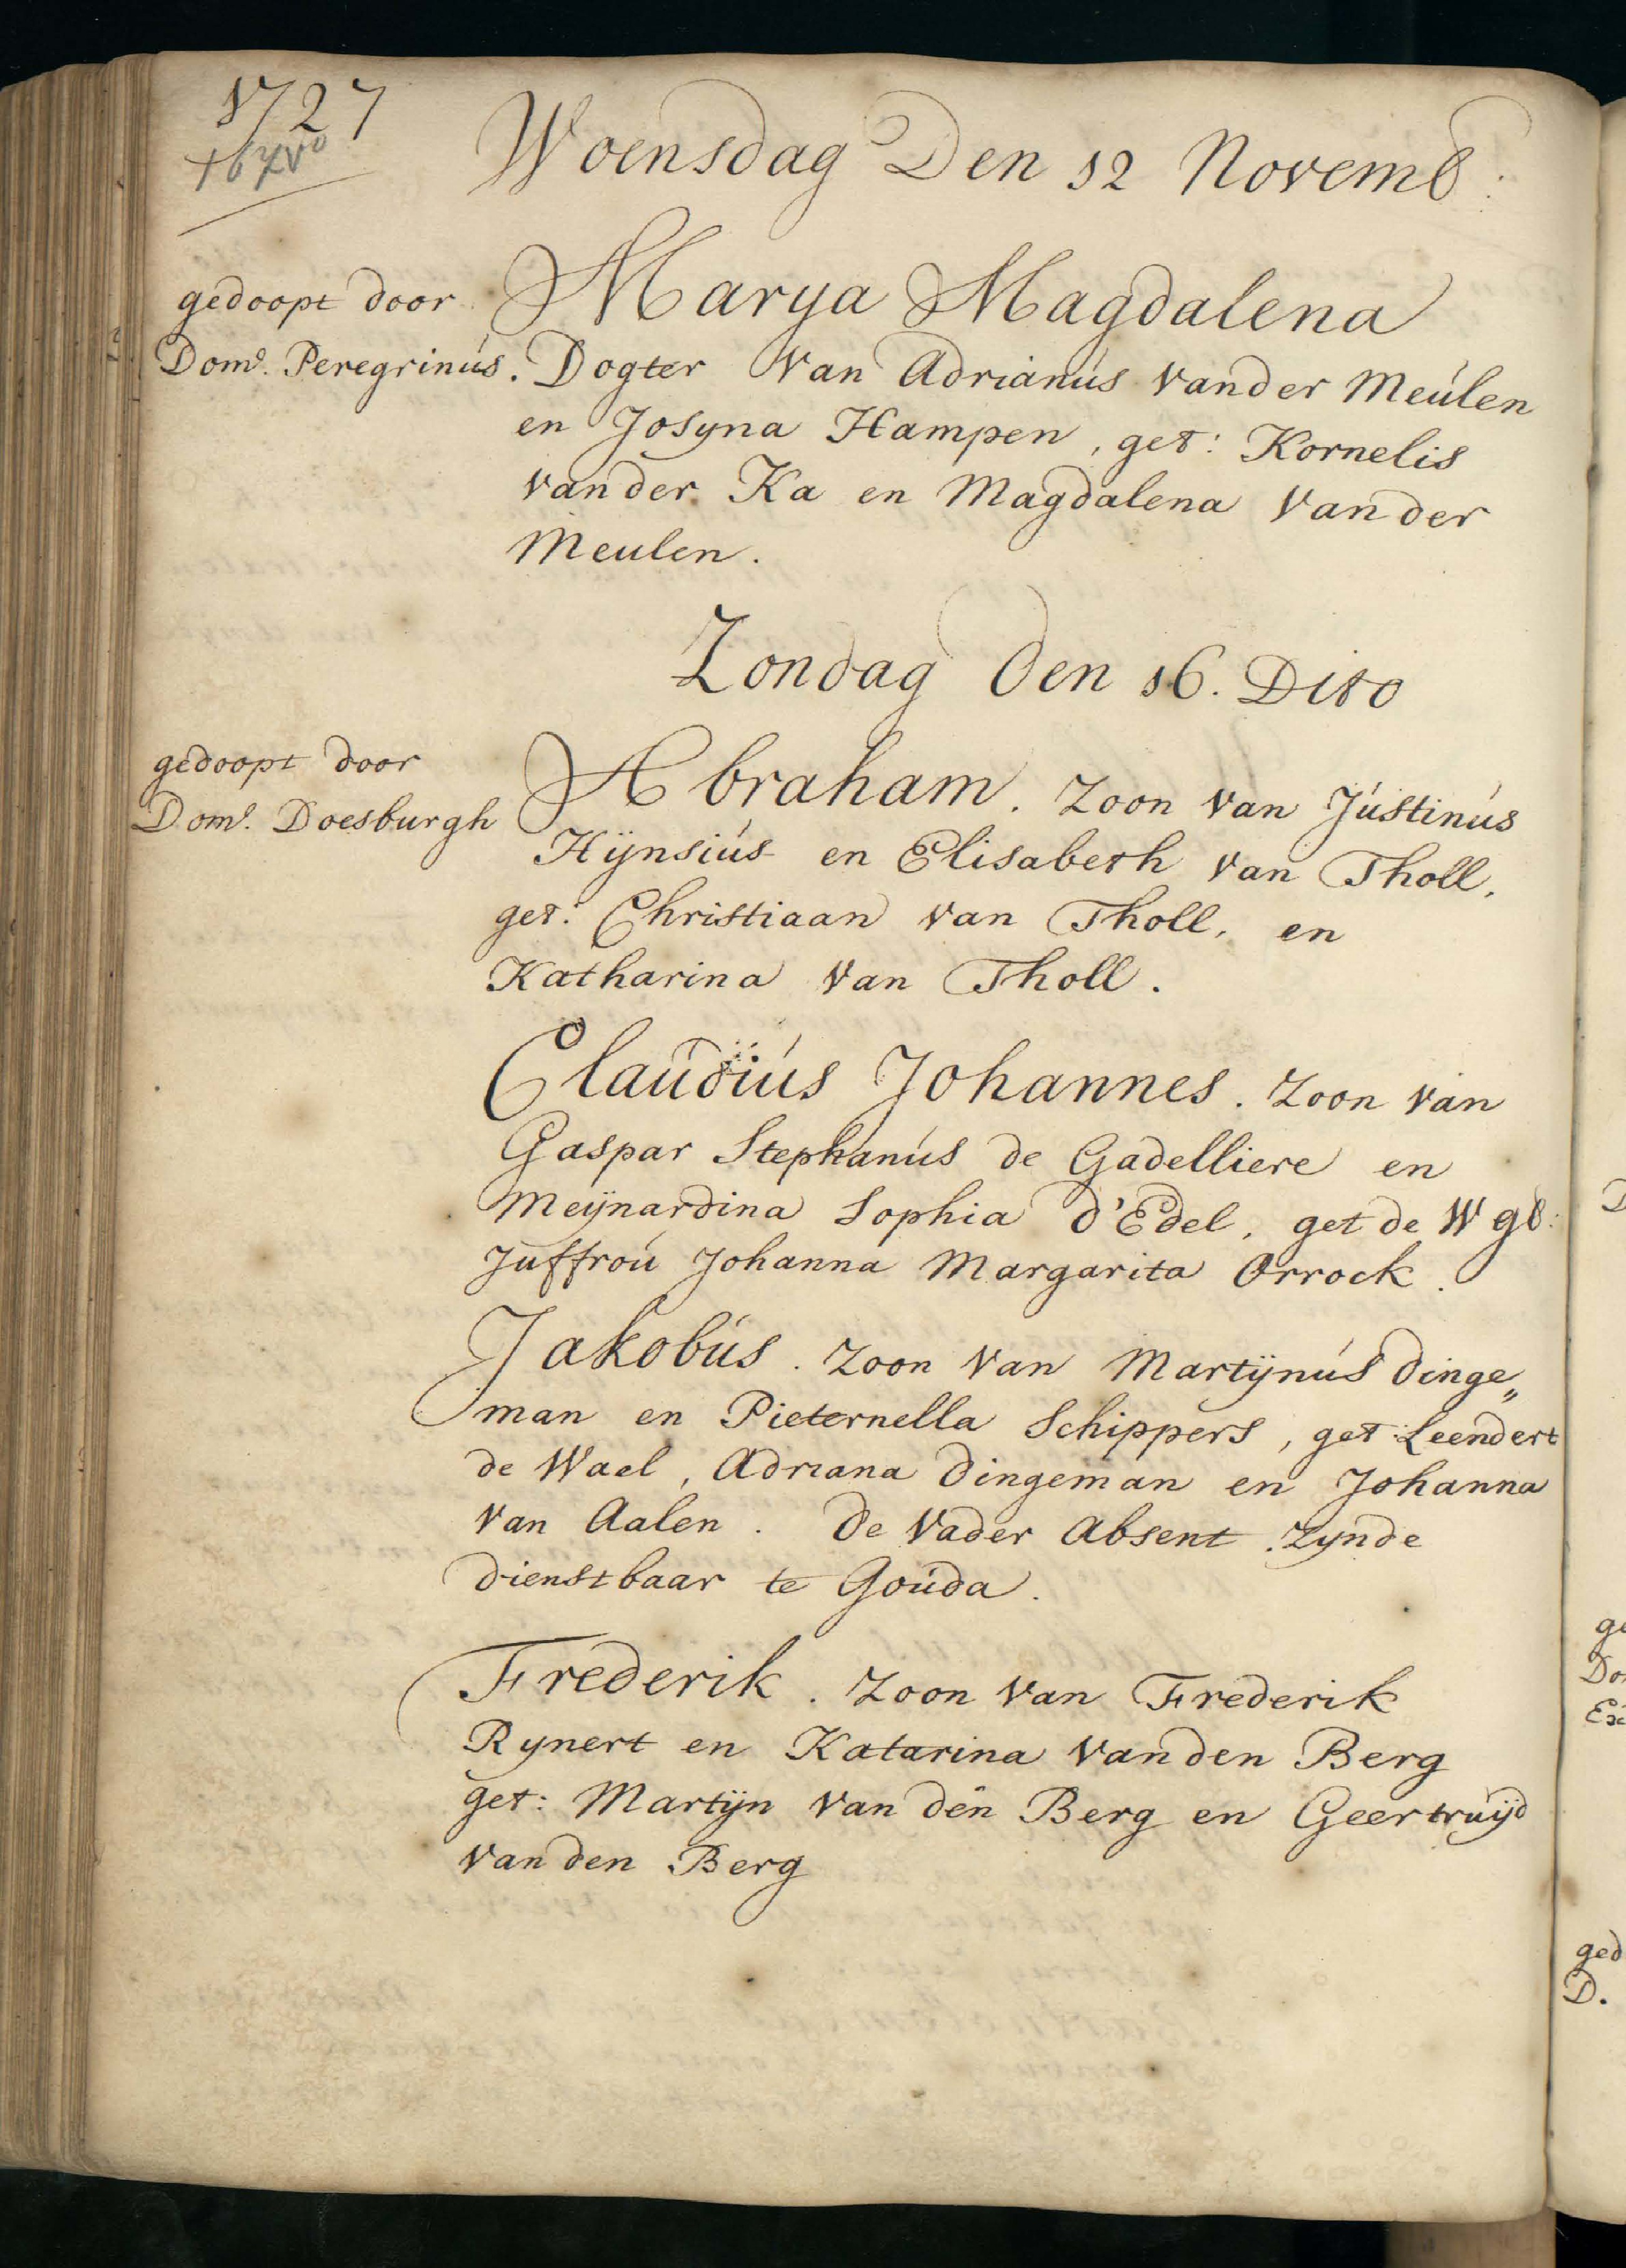 1727
167vo
Woensdag Den 12 Novemb:
gedoopt door
Domo. Peregrinús.
Marya Magdalena
Dogter Van Adrianús vander Meúlen
en Josyna Hampen, get: Kornelis
vander Ka en Magdalena Vander
Meulen.
Zondag Den 16. Dito
gedoopt door
Domo. Doesburgh
Abraham. Zoon van Jústinús
Hÿnsiús en Elisabeth van Tholl,
get: Christiaan van Tholl, en
Katharina van Tholl.
Claudiús Johannes. Zoon van
Gaspar Stephanús de Gadelliere en
Meÿnardina Sophia d'Edel, get de Wgb:
Juffroú Johanna Margarita Orrock.
Jakobús. Zoon van Martÿnús Dinge„
man en Pieternella Schippers, get: Leendert
de Wael, Adriana Dingeman en Johanna
van Aalen. De vader Absent zynde
dienstbaar te Goúda.
Frederik. Zoon van Frederik
Rynert en Katarina vanden Berg
get: Martÿn van den Berg en Geertruÿd
vanden Berg
D
ge
Do
Ex
ged
D.